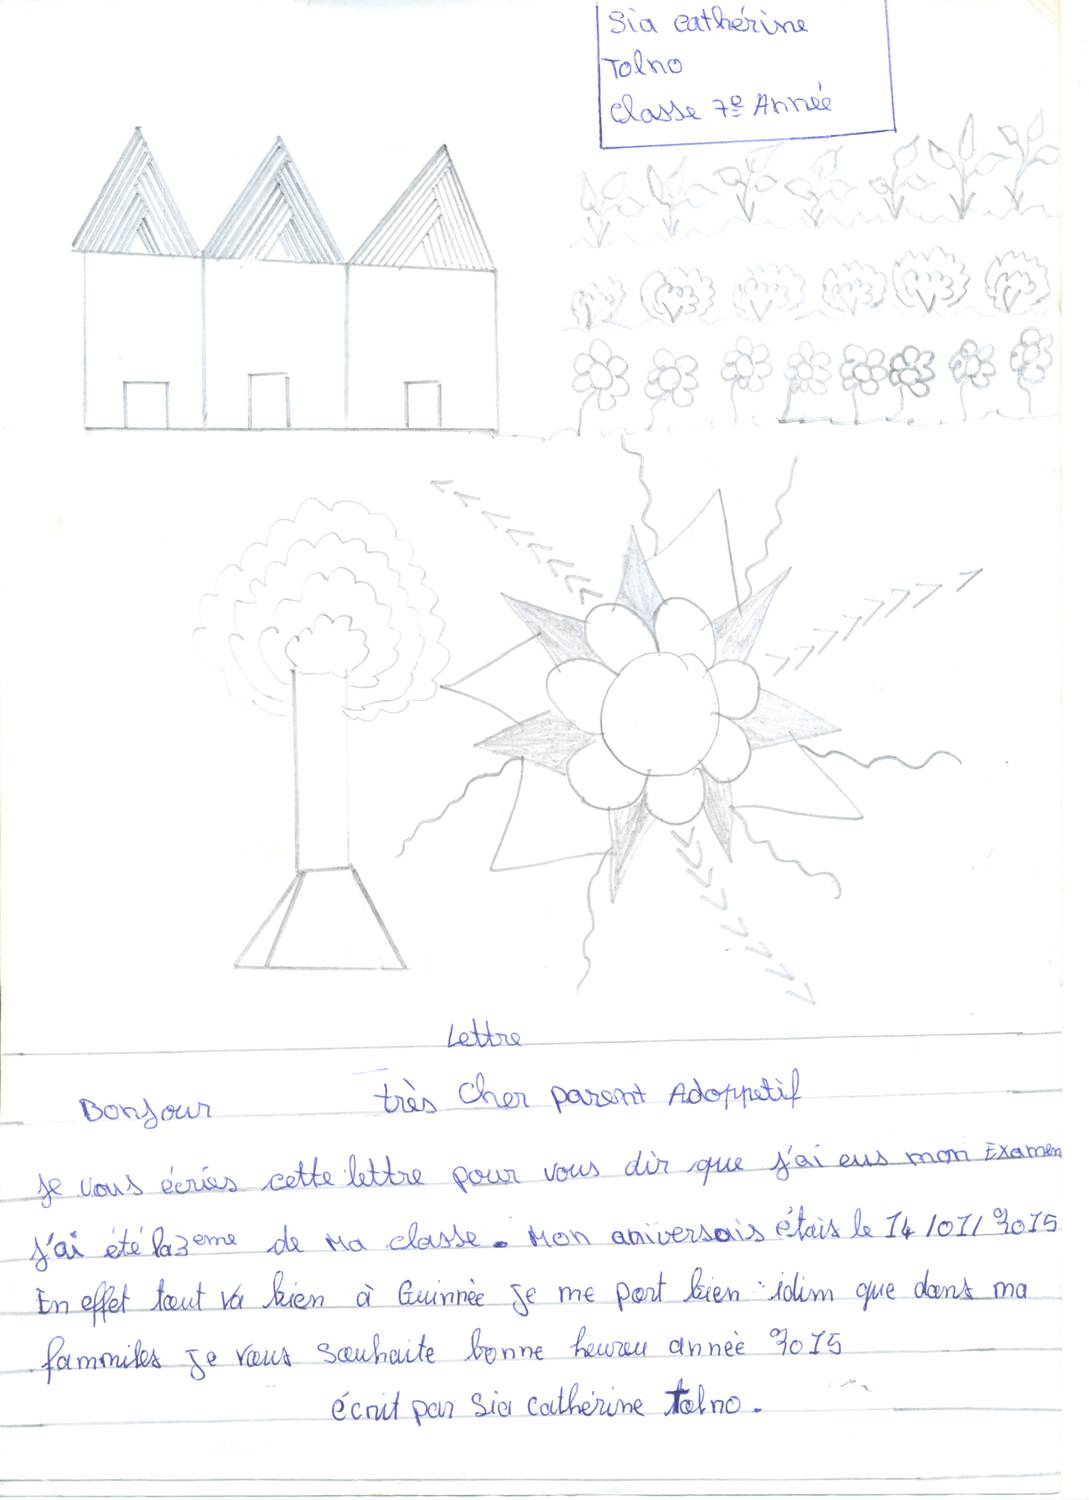 Sia cathérine
Tolno
Classe 7e Année
Lettre
Bonjour très Cher parent Adoppetif
Je vous écries cette lettre pour vous dir que j'ai eus mon Examen
J'ai été la 3eme de Ma classe. Mon aniversais étais le 14/01/2015
En effet tout va bien à Guinnèe Je me port bien idim que dans ma
fammiles Je vous souhaite bonne heureu année 2015
écrit par Sia cathérine Tolno.